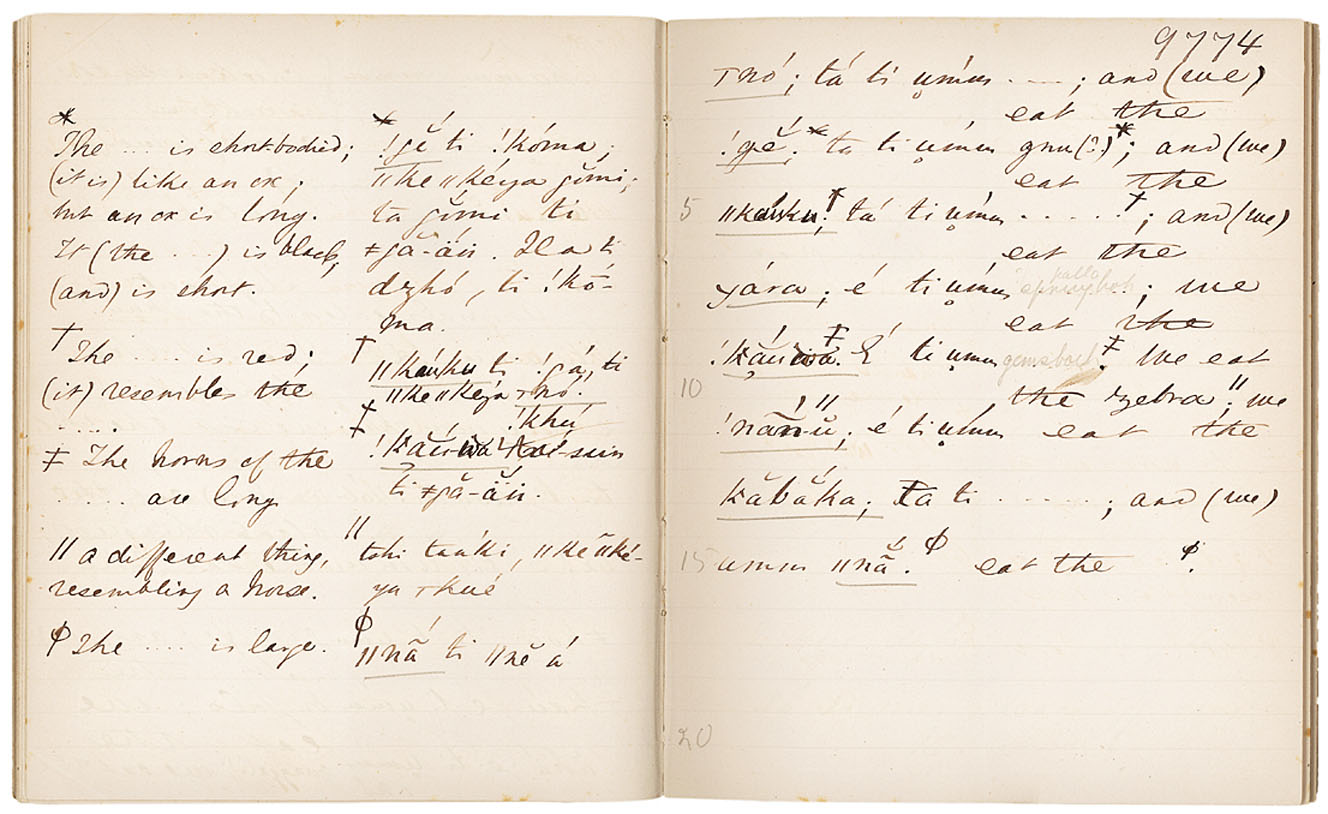 *
The .... is short-bodied;
(it is) like an ox;
but an ox is long.
It (the ...) is black,
(and) is short.
† The .... is red;
(it) resembles the
....
‡ The horns of the
.... are long
// a different thing,
resembling a horse.
ϕ The .... is large.
*
!gĕ́ ti !kóma;
//ke //kéya gŭ́mi;
ta gŭ́mi ti
ǂgă-ăń. Ha ti
dzhó, ti !kó-
ma.
†
//káuku ti !gá, ti
//ke //kéya Tnó.
‡ !khú
ti ǂgă-ăń.
// tshi tańki, //kĕ //ké-
ya Tkué
ϕ
//nã́ ti //nĕ á
9774
Tnó; tá ti ụḿm ....; and (we)
eat the
!gĕ́.* ta ti ụḿm gnu(?)*; and (we)
eat the
5 //káuku;† tá ti ụḿm .....†; and (we)
eat the
yára; é ti ụḿm springbok ..; we
eat the
ti ụmm gemsbock‡. We eat
10
the zebra"; we
é ti ụḿm eat the
kăbắka; ta ti .....; and (we)
15 umm //nã́.ϕ eat the ϕ.
20